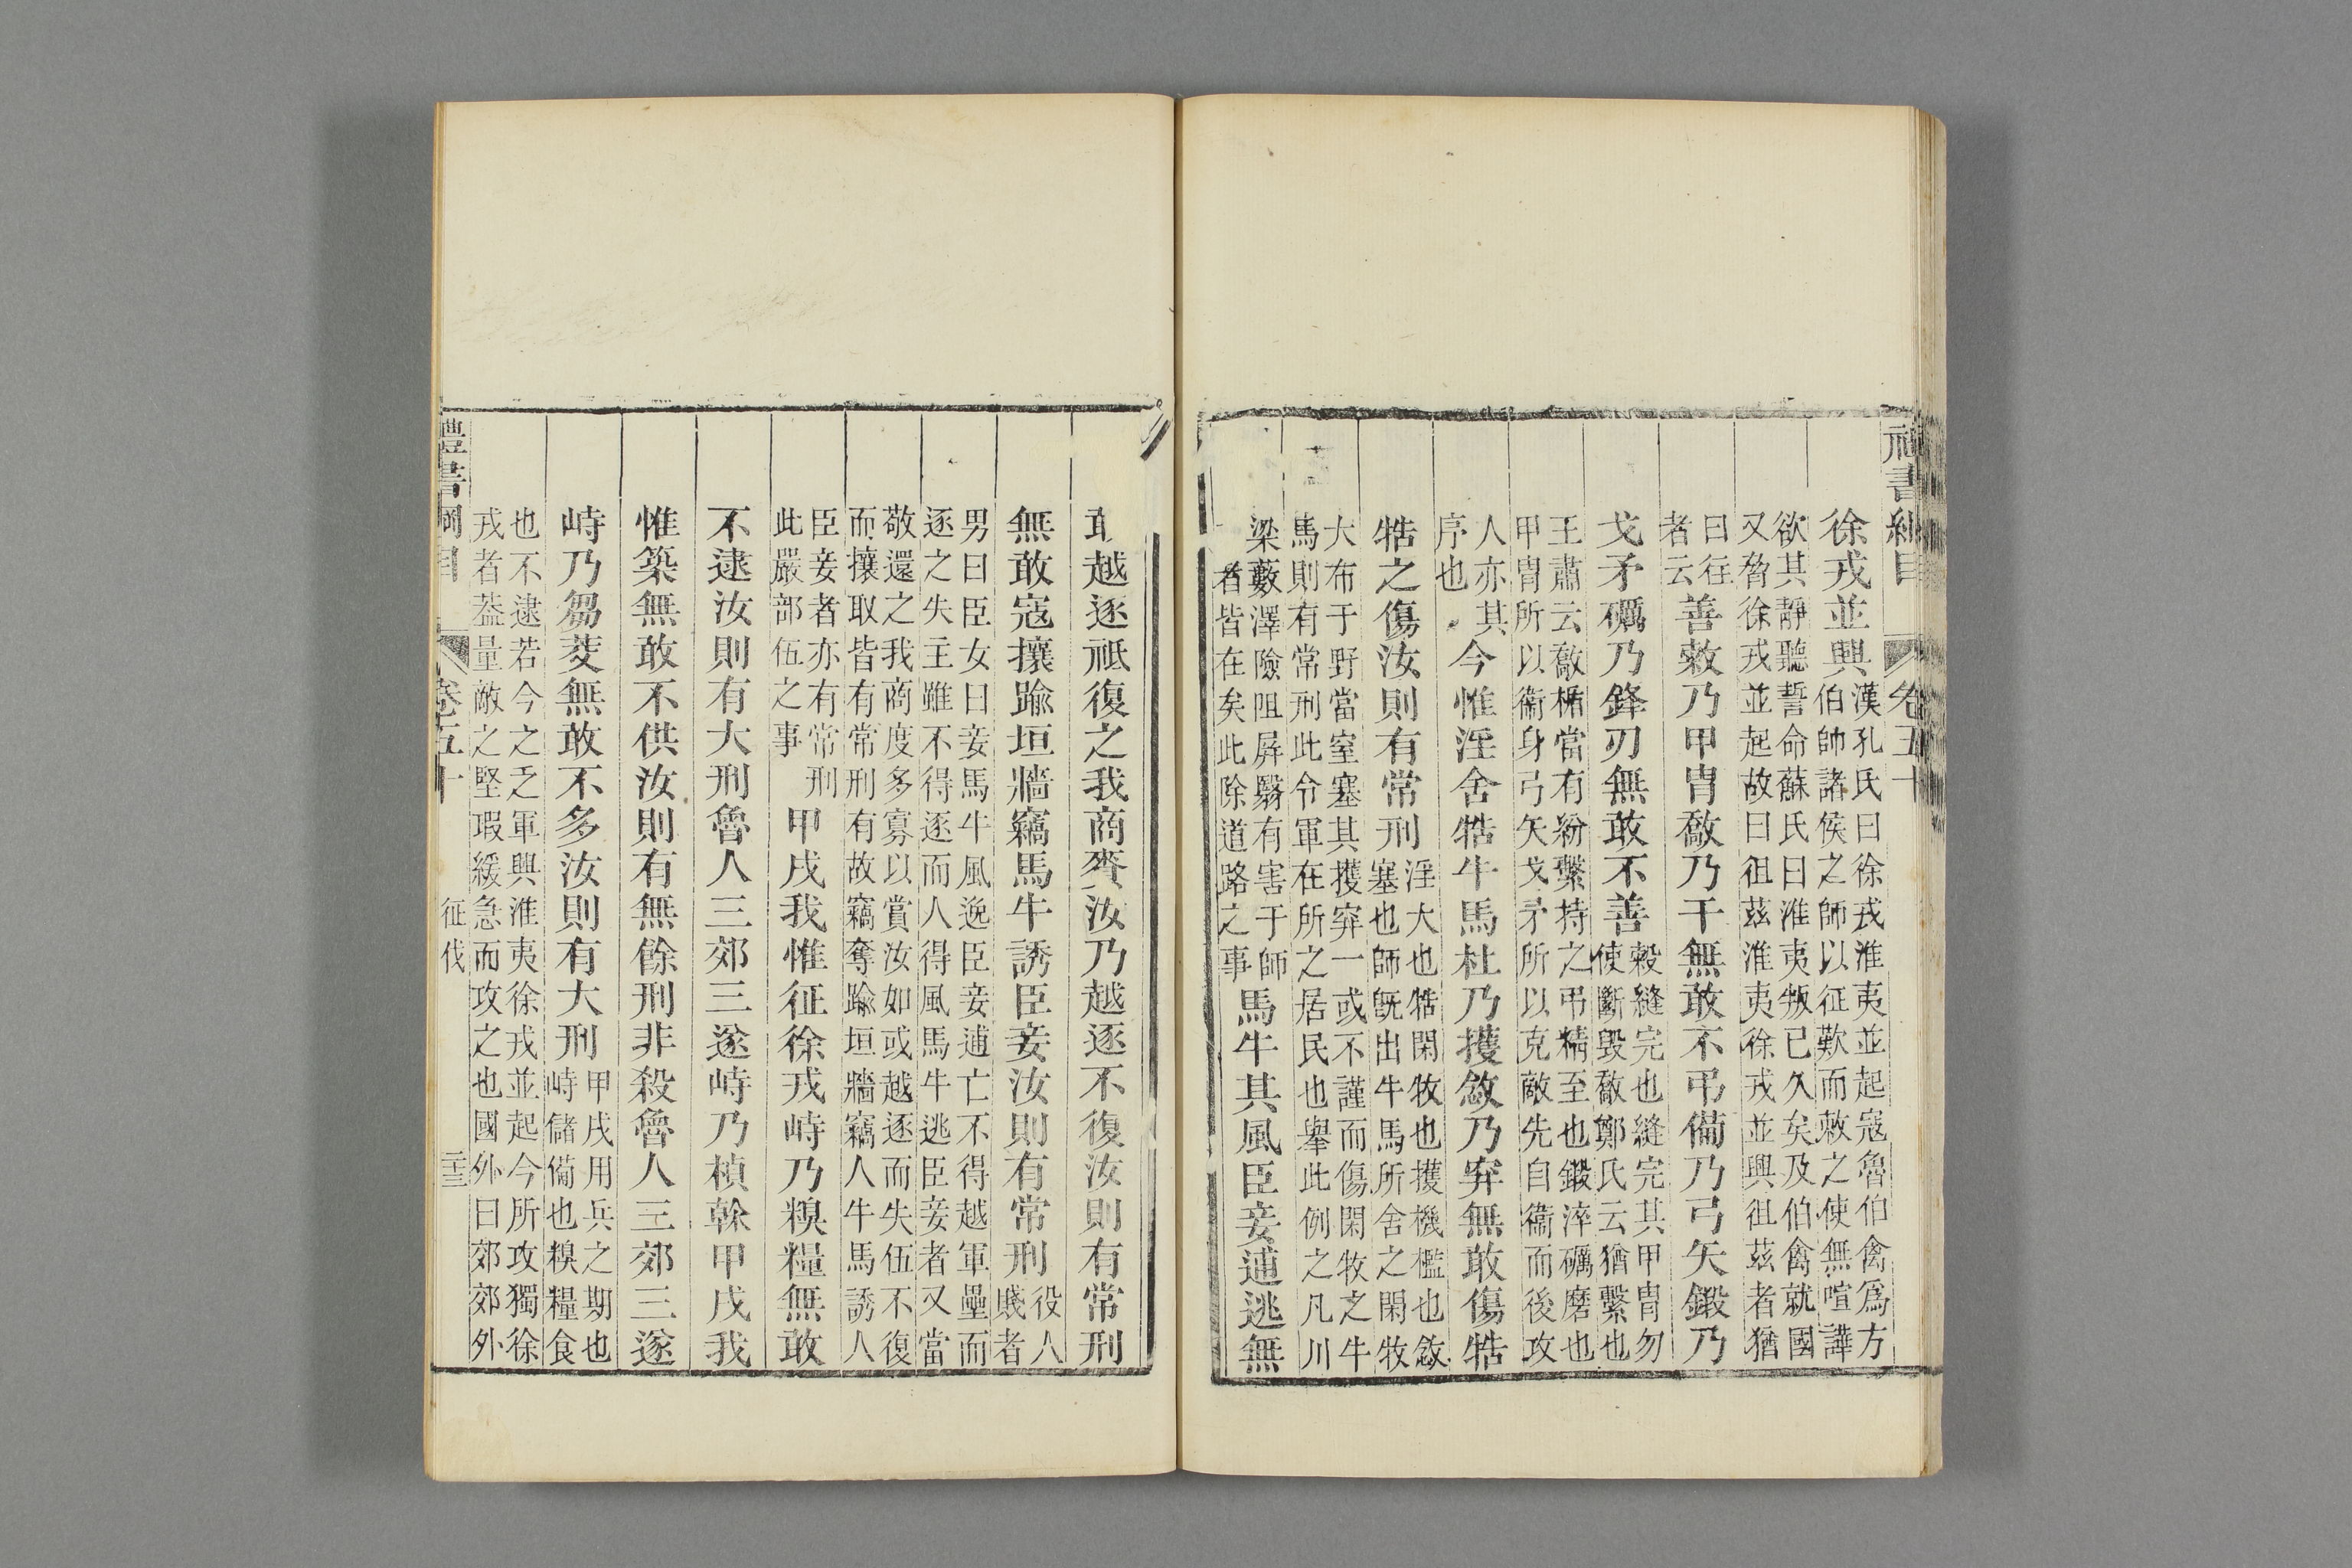 禮書綱目 卷五十
徐戎並興漢孔氏曰徐戎淮夷並起寇魯伯禽爲方
伯帥諸侯之師以征歎而敕之使無喧譁
欲其靜聽誓命蘇氏曰淮夷叛已久矣及伯禽就國
又脅徐戎並起故曰徂茲淮夷徐戎並興徂茲者猶
曰往
者云善敹乃甲冑敿乃干無敢不弔備乃弓矢鍛乃
戈矛礪乃鋒刃無敢不善敹縫完也縫完其甲冑勿
使斷毀敿鄭氏云猶繫也
王肅云敿楯當有紛繫持之弔精至也鍛淬礪磨也
甲冑所以衞身弓矢戈矛所以克敵先自衞而後攻
人亦其
序也今惟淫舍牿牛馬杜乃擭敜乃穽無敢傷牿
牿之傷汝則有常刑淫大也牿閑牧也擭機檻也敜
塞也師旣出牛馬所舍之閑牧
大布于野當窒塞其擭穽一或不謹而傷閑牧之牛
馬則有常刑此令軍在所之居民也舉此例之凡川
梁藪澤險阻屏翳有害于師
者皆在矣此除道路之事馬牛其風臣妾逋逃無
越逐祗復之我商賚汝乃越逐不復汝則有常刑
無敢寇攘踰垣牆竊馬牛誘臣妾汝則有常刑役人
賤者
男曰臣女曰妾馬牛風逸臣妾逋亡不得越軍壘而
逐之失主雖不得逐而人得風馬牛逃臣妾者又當
敬還之我商度多寡以賞汝如或越逐而失伍不復
而攘取皆有常刑有故竊奪踰垣牆竊人牛馬誘人
臣妾者亦有常刑
此嚴部伍之事甲戌我惟征徐戎峙乃糗糧無敢
不逮汝則有大刑魯人三郊三遂峙乃楨榦甲戌我
惟築無敢不供汝則有無餘刑非殺魯人三郊三遂
峙乃芻茭無敢不多汝則有大刑甲戌用兵之期也
峙儲備也糗糧食
也不逮若今之乏軍興淮夷徐戎並起今所攻獨徐
戎者葢量敵之堅瑕緩急而攻之也國外曰郊郊外
禮書綱目 卷五十 征伐 三